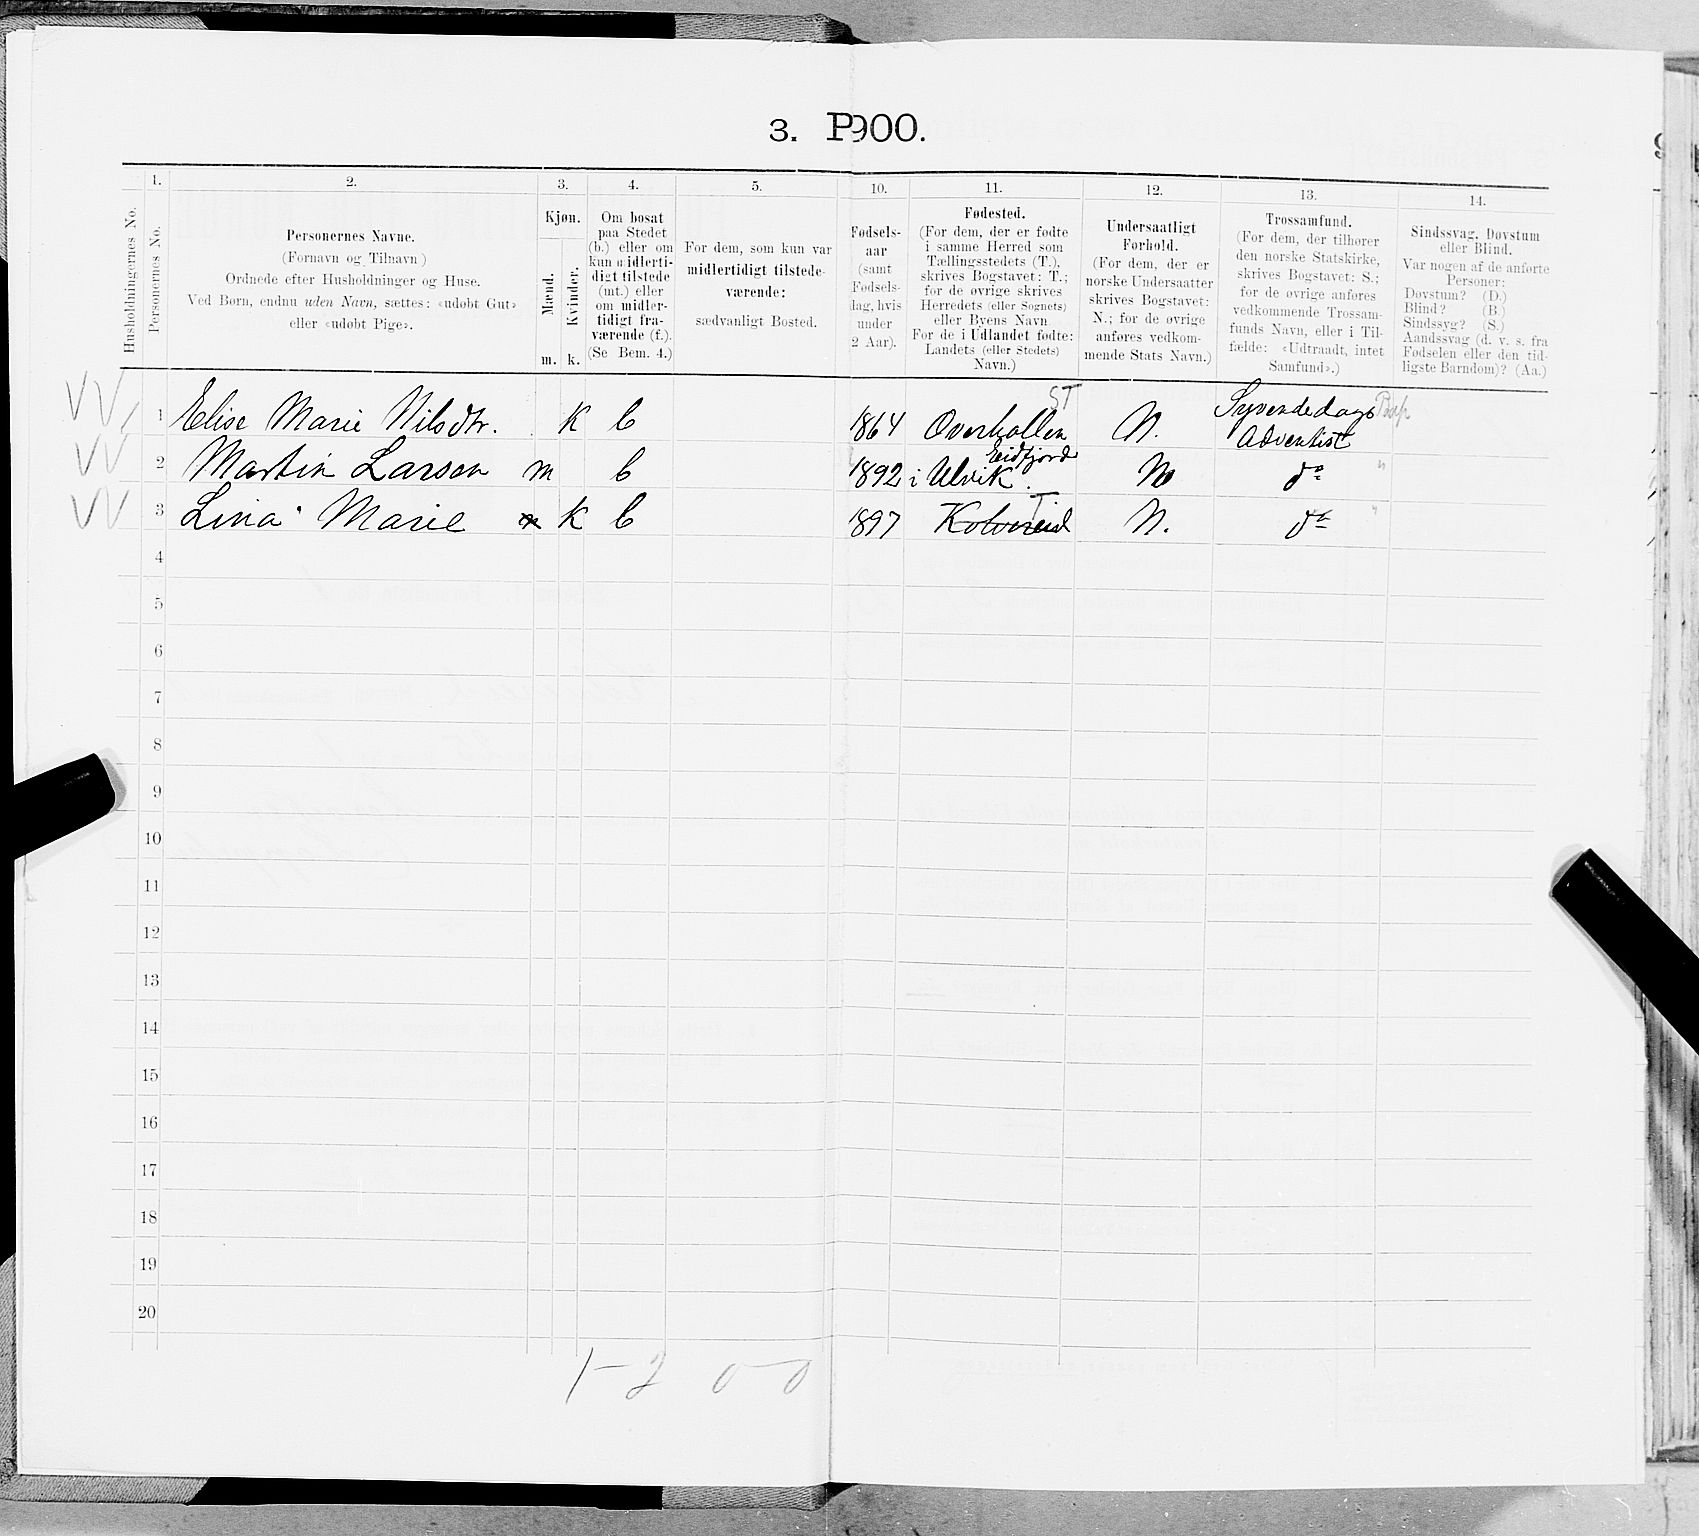 3. P900.
1. 2. 3. 4. 5. 10. 11. 12. 13. 14.
Husholdningernes No.
Personernes No.
Personernes Navne.
(Fornavn og Tilnavn)
Ordnede efter Husholdninger og Huse.
Ved Børn, endnu uden Navn, sættes: «udøbt Gut»
eller «udøbt Pige».
Kjøn.
Mænd.
Kvinder.
m. k.
Om bosat
paa Stedet
(b.) eller om
kun midlerti-
digt tilstede
(mt.) eller
om midler-
tidigt fra-
værende (f.).
(Se Bem. 4.)
For dem, som kun var
midlertidigt tilstede-
værende:
sædvanligt Bosted.
Fødsels-
aar
(samt
Fødsels-
dag, hvis
under
2 Aar).
Fødested.
(For dem, der er fødte
i samme Herred som
Tællingsstedets (T.),
skrives Bogstavet: T.;
for de øvrige skrives
Herredets (eller Sognets)
eller Byens Navn
For de i Udlandet fødte:
Landets (eller Stedets)
Navn.)
Undersaatligt
Forhold.
(For dem, der er
norske Undersaatter
skrives Bogstavet:
N.; for de øvrige
anføres vedkom-
mende Stats Navn.)
Trossamfund.
(For dem, der tilhører
den norske Statskirke,
skrives Bogstavet: S.;
for de øvrige anføres
vedkommende Trossam-
funds Navn, eller i Til-
fælde: «Udtraadt, intet
Samfund».)
Sindssvag, Døvstum
eller Blind.
Var nogen af de anførte
Personer:
Døvstum? (D.)
Blind? (B.)
Sindssyg? (S.)
Aandssvag (d. v. s. fra
Fødselen eller den tid-
ligste Barndom)? (Aa.)
ST
1 Elise Marie Nilsdtr. K b 1864 Overhallen N. Syvendedags
Adventist
Eidfjord
2 Martin Larsen m b 1892 i Ulvik. N do
T
3 Lina Marie K b 1897 Kolvereid N. do
4
5
6
7
8
9
10
11
12
13
14
15
16
17
18
19
20
1-2 0-0